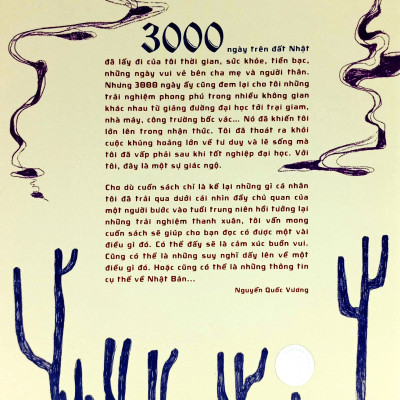 3000 ngày trên đất Nhật
đã lấy đi của tôi thời gian, sức khỏe, tiền bạc,
những ngày vui vẻ bên cha mẹ và người thân.
Nhưng 3000 ngày ấy cũng đem lại cho tôi những
trải nghiệm phong phú trong nhiều không gian
khác nhau từ giảng đường đại học tới trại giam,
nhà máy, công trường bốc vác... Nó đã khiến tôi
lớn lên trong nhận thức. Tôi đã thoát ra khỏi
cuộc khủng hoảng lớn về tư duy và lẽ sống mà
tôi đã vấp phải sau khi tốt nghiệp đại học. Với
tôi, đây là một sự giác ngộ.
Cho dù cuốn sách chỉ là kể lại những gì cá nhân
tôi đã trải qua dưới cái nhìn đầy chủ quan của
một người bước vào tuổi trung niên hồi tưởng lại
những trải nghiệm thanh xuân, tôi vẫn mong
cuốn sách sẽ giúp cho bạn đọc có được một vài
điều gì đó. Có thể đấy sẽ là cảm xúc buồn vui.
Cũng có thể là những suy nghĩ dấy lên về một
điều gì đó. Hoặc cũng có thể là những thông tin
cụ thể về Nhật Bản...
Nguyễn Quốc Vương